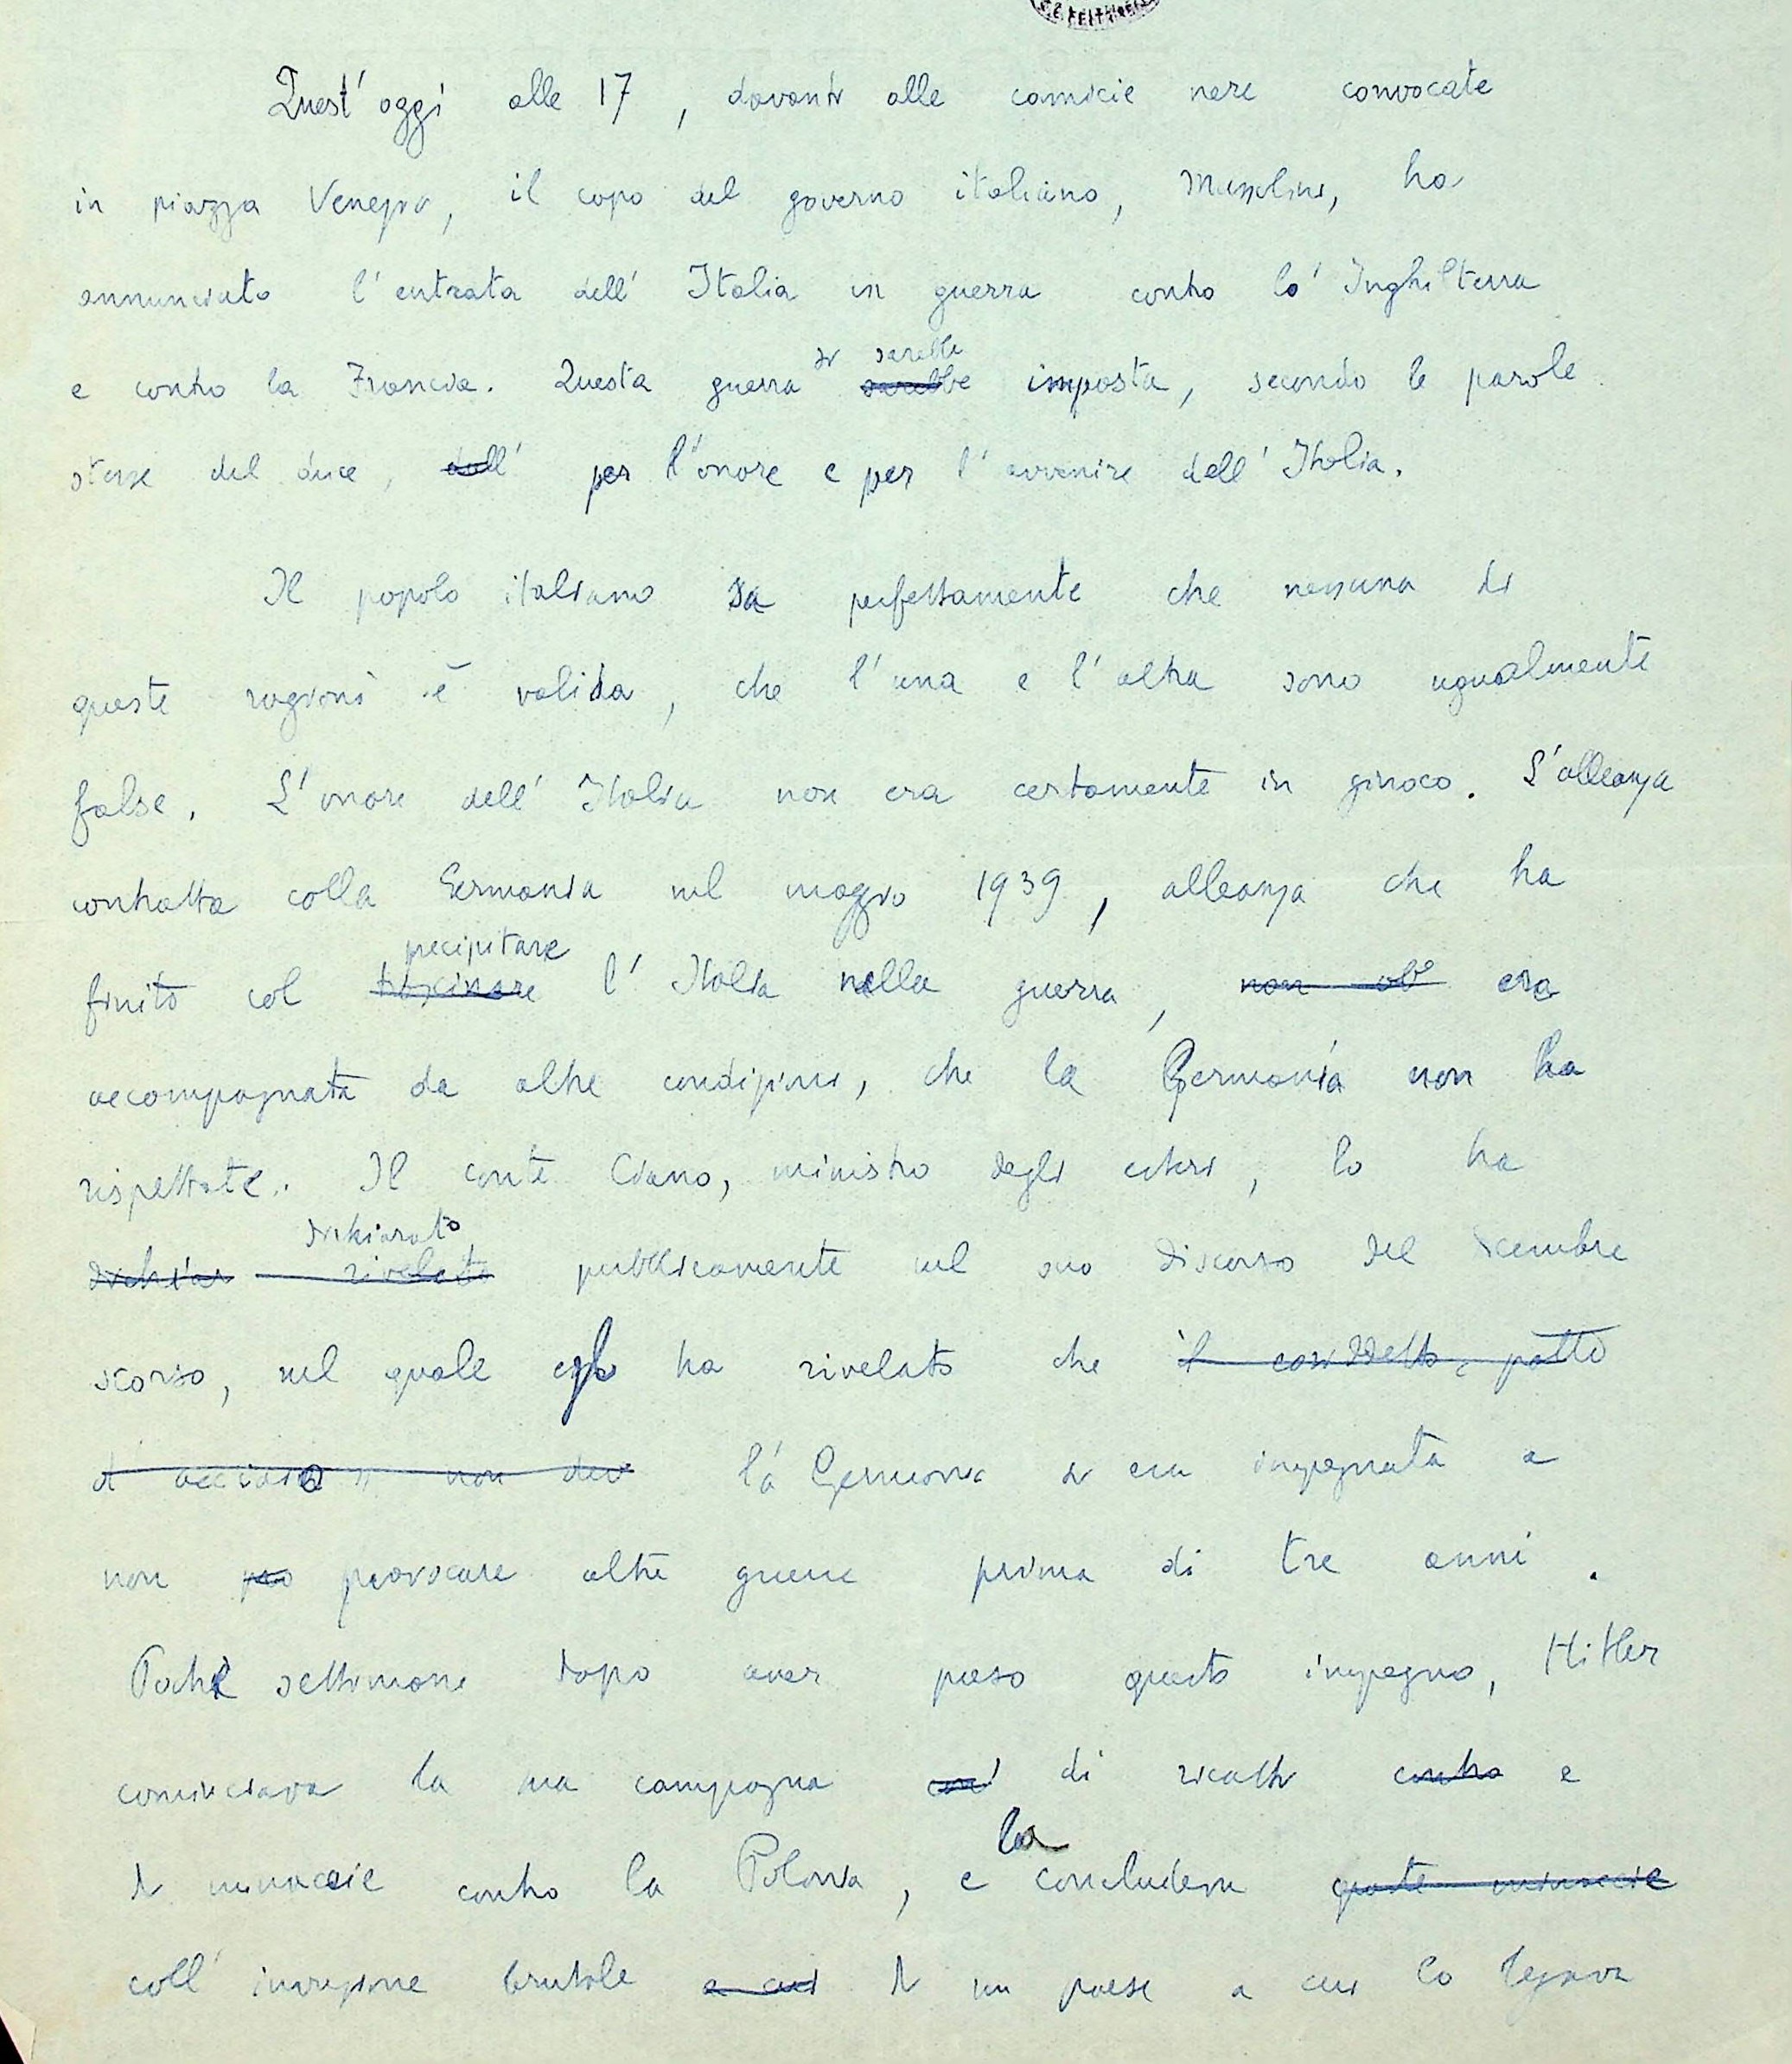 Quest'oggi alle 17, davanti alle camicie nere convocate
in piazza Venezia, il capo del governo italiano, Mussolini, ha
annunciato l'entrata dell'Italia in guerra contro l'Inghilterra
e contro la Francia. Questa guerra si sarebbe sarebbe imposta, secondo le parole
stesse del duce, dall' per l'onore e per l'avvenire dell'Italia.
Il popolo italiano sa perfettamente che nessuna di
queste ragioni è valida, che l'una e l'altra sono ugualmente
false. L'onore dell'Italia non era certamente in giuoco. L'alleanza
contratta colla Germania nel maggio 1939, alleanza che ha
precipitare
finito col trascinare l'Italia nella guerra, non era
accompagnata da altre condizioni, che la Germania non ha
rispettate. Il conte Ciano, ministro degli esteri, lo ha
dichiarato
dichiar rivelato pubblicamente nel suo discorso del dicembre
scorso, nel quale egli ha rivelato che il cosiddetto patto
d'acciaio" non la Germania si era impegnata a
non pro provocare altre guerre prima di tre anni.
Poche settimane dopo aver preso questo impegno, Hitler
cominciava la sua campagna di ricatti contro e
la
di minaccie contro la Polonia, e concludeva queste minaccie
coll'invasione brutale a cui di un paese a cui lo legava